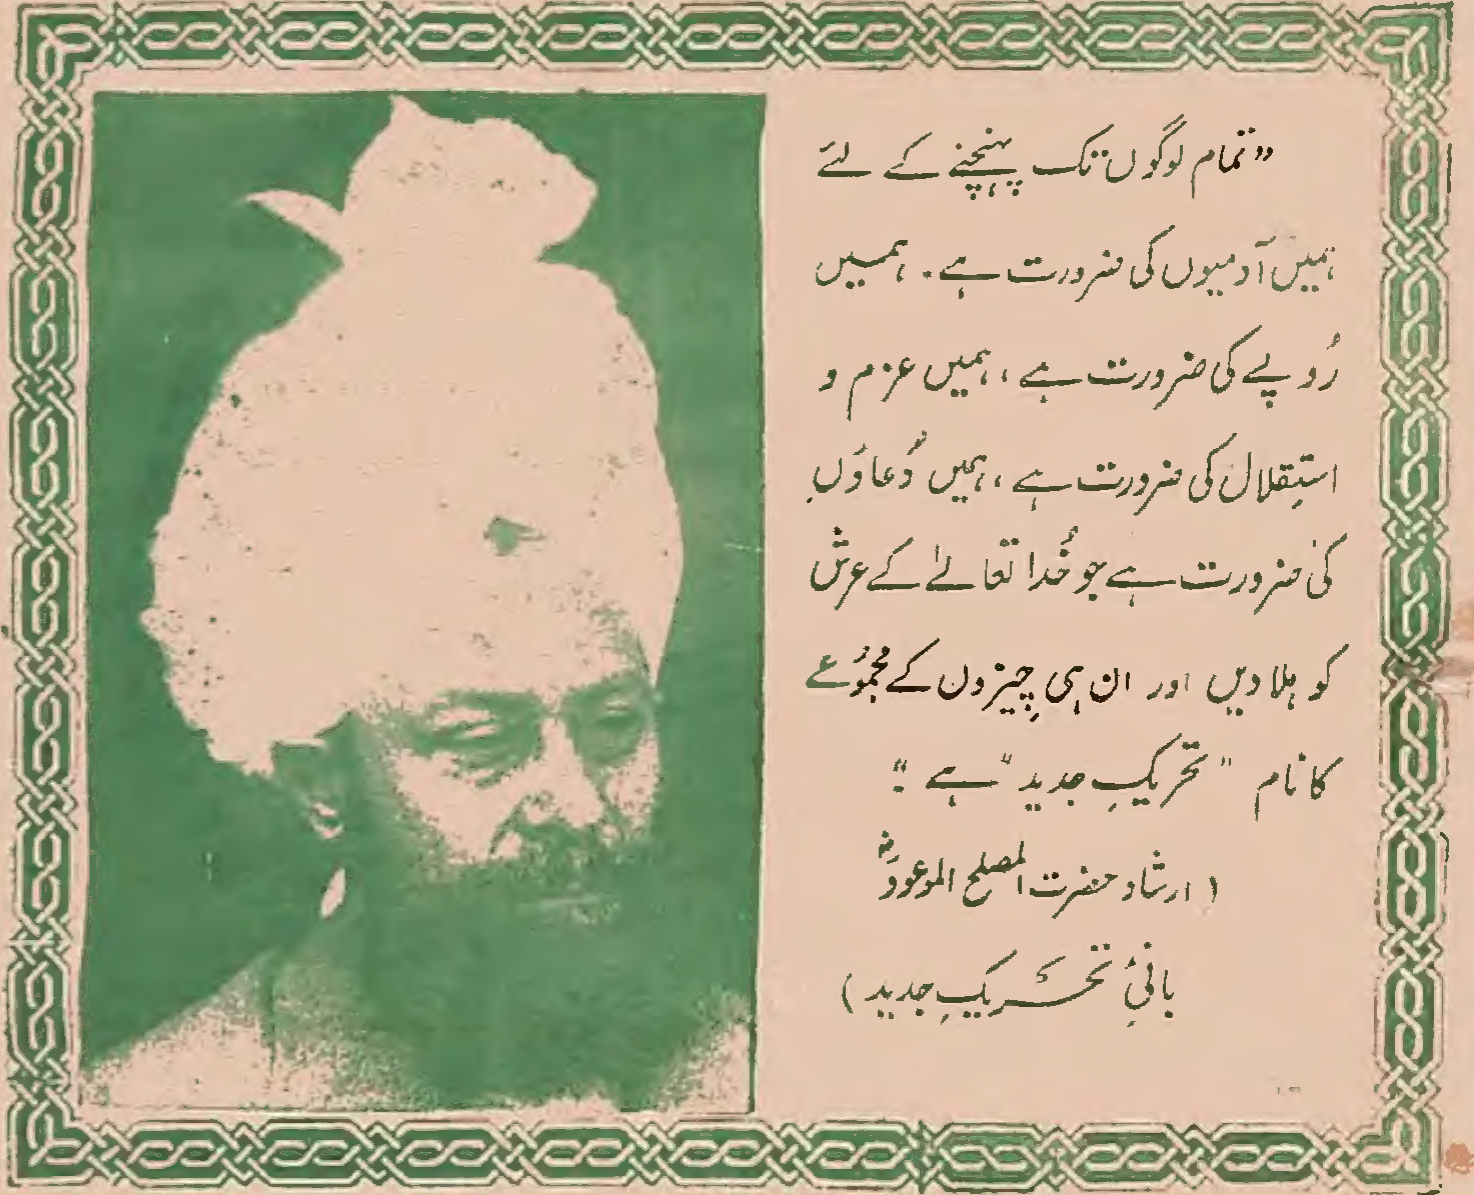 "تمام لوگوں تک پہنچنے کے لئے
ہمیں آدمیوں کی ضرورت ہے۔ ہمیں
رُوپے کی ضرورت ہے، ہمیں عزم و
استقلال کی ضرورت ہے، ہمیں دُعاؤں
کی ضرورت ہے جو خُدا تعالیٰ کے عرش
کو ہلا دیں اور ان ہی چیزوں کے مجموُعے
کا نام "تحریکِ جدید" ہے"
(ارشاد حضرت المصلح الموعودؓ
بانیٔ تحریکِ جدید)